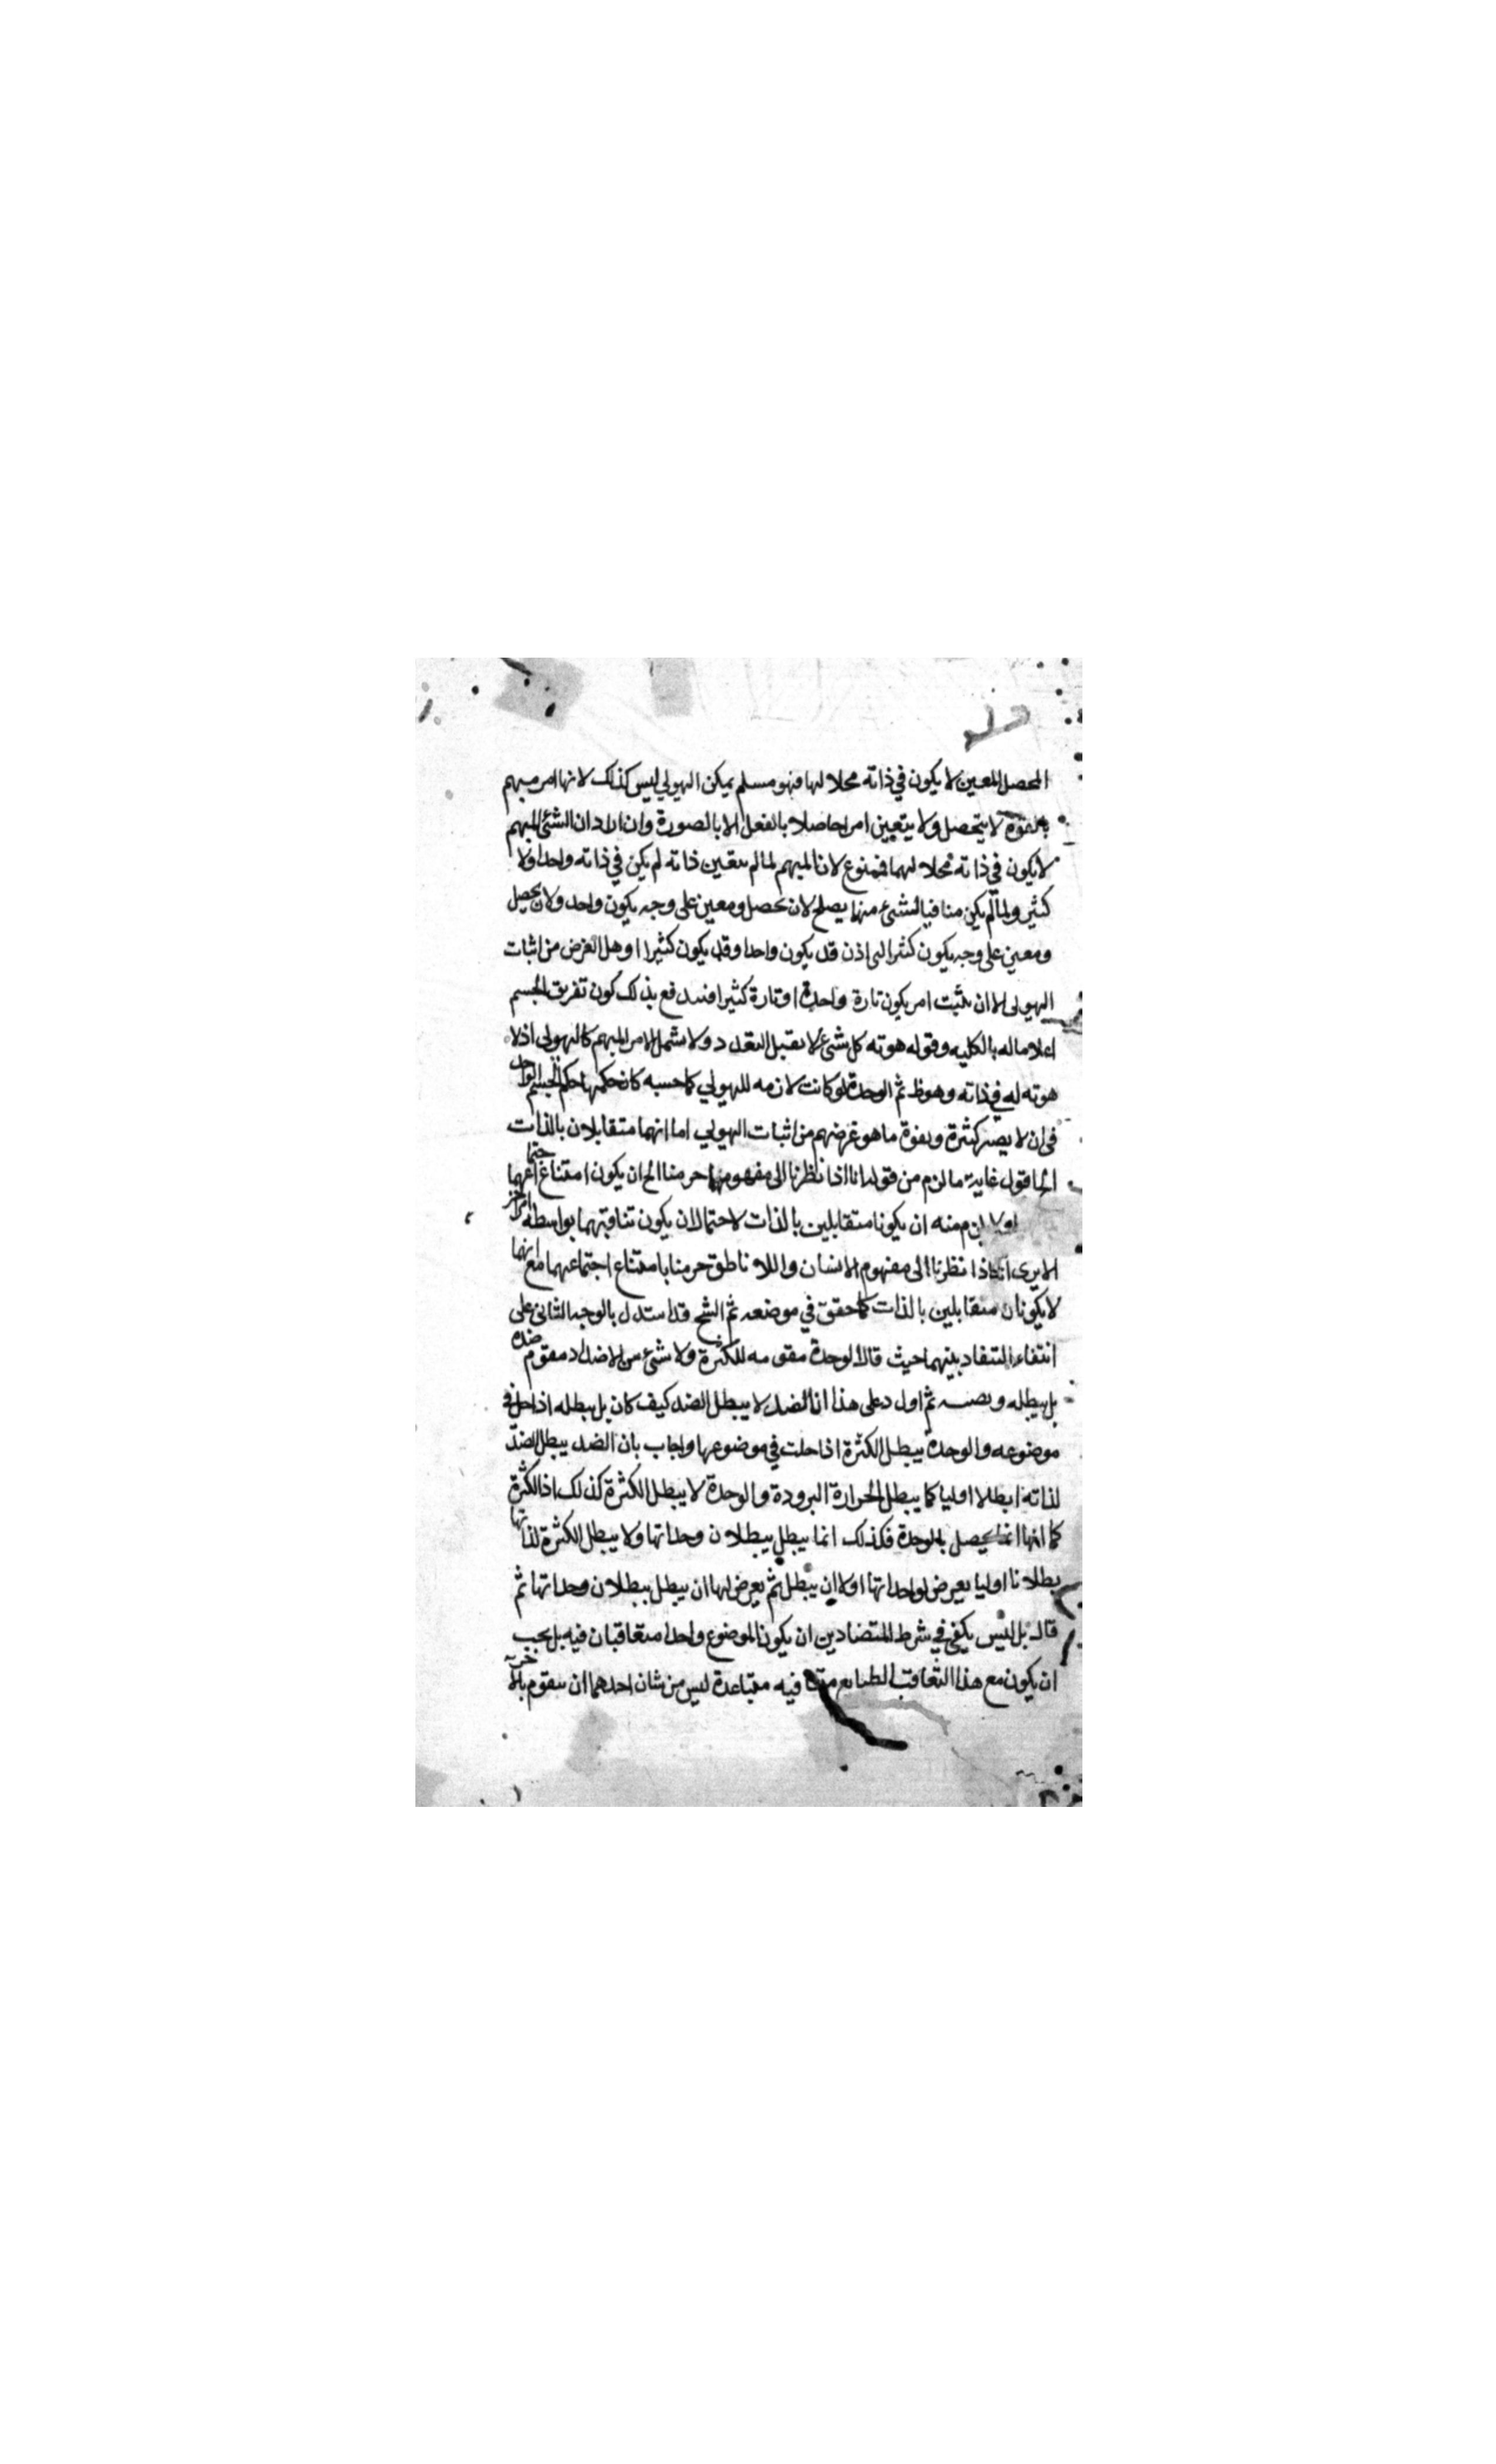 المحصل المعين لا يكون في ذاته محلا لها فهو مسلم يمكن الهيولي ليس كذلك لانها امر مبهم
بالقوة لا يتحصل ولا يتعين امرا حاصلا بالفعل الا بالصورة وان اراد ان الشئ المبهم
لا يكون في ذاته محلا لهما فممنوع لان المبهم لما لم يتعين ذاته لم يكن في ذاته واحدا ولا
كثير ولما لم يكن منافيا لشئ منها يصلح لان يحصل ومعين على وجه يكون واحد ولان يحصل
ومعين على وجه يكون كثيرا اذن قد يكون واحدا وقد يكون كثيرا وهل الغرض من اثبات
الهيولى الا ان يثبت امر يكون تارة واحدة وتارة كثيرا فيندفع بذلك كون تفريق الجسم
اعداما له بالكليه وقوله هوته كل شئ لا يقبل التعدد ولا يشمل الامر المبهم كالهيولي اذ لا
هوته له في ذاته وهو ظ ثم الوحدة لو كانت لازمه للهيولي كما حسبه كان حكمها حكم الجسم الواحد
في ان لا يصير كثيرة ويفوة ما هو غرضهم من اثبات الهيولي اما انهما متقابلان بالذات
اقول غاية ما لزم من قوله انا اذا نظرنا الى مفهومها جزمنا الخ ان يكون امتناع اجتماعهما
ولا يلزم منه ان يكونا متقابلين بالذات لاحتمال ان يكون تنافيهما بواسطه امر اخر
الا يرى انا اذا نظرنا الى مفهوم الانسان واللا ناطق جزمنا بامتناع اجتماعهما مع انهما
لا يكونان متقابلين بالذات كما حقق في موضعه ثم الشيخ قد استدل بالوجه الثاني على
انتفاء التضاد بينهما حيث قال الوحدة مقومه للكثرة ولا شئ من الاضداد مقوم ضده
بل يبطله ثم اورد على هذا ان الضد لا يبطل الضد كيف كان بل يبطله اذا حل في
موضوعه والوحدة يبطل الكثرة اذا حلت في موضوعها واجاب بان الضد يبطل الضد
لذاته ابطالا اوليا كما يبطل الحرارة البرودة والوحدة لا يبطل الكثرة كذلك اذ الكثرة
كما انها انما يحصل بالوحدة فكذلك انما يبطل ببطلان وحداتها ولا يبطل الكثرة لذاتها
بطلانا اوليا يعرض لوحداتها اولا ان يبطل ثم يعرض لها ان يبطل ببطلان وحداتها ثم
قال بل ليس يكفي في شرط المتضادين ان يكون الموضوع واحدا متعاقبان فيه بل يجب
ان يكون مع هذا التعاقب الطبايع متنافيه متباعدة ليس من شان احدهما ان يتقوم بالاخر